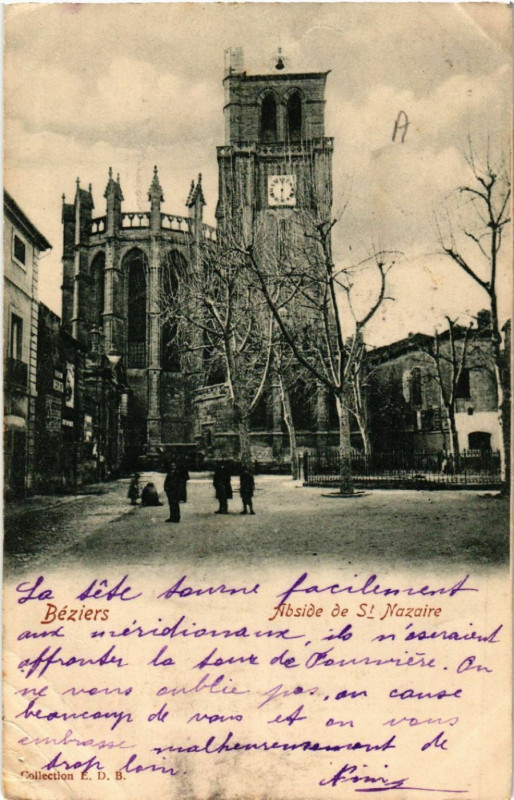 A
La tête tourne facilement
Béziers
Abside de St Nazaire
aux méridionaux, ils n'oseraient
affronter la tour de Fourvière. On
ne vous oublie pas, on cause
beaucoup de vous et on vous
embrasse malheureusement de
trop loin.
Collection E. D. B.